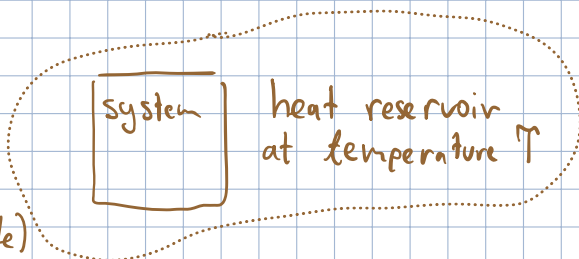 system heat reservoir
at temperature T
e)